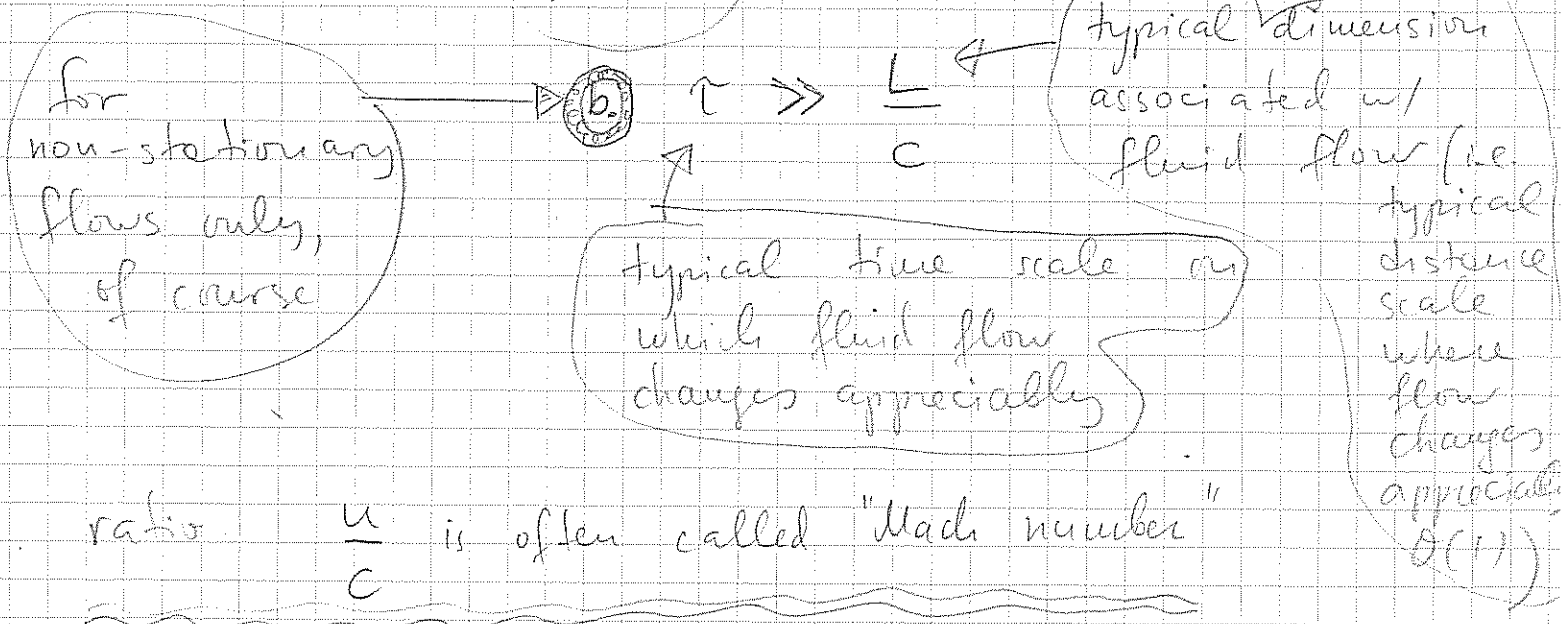 for
non-stationary
flows only,
of course
b. τ ≫ L/c
typical dimension
associated w/
fluid flow (i.e.
typical
distance
scale
where
flow
changes
O(1))
typical time scale on
which fluid flow
changes appreciably
ratio u/c is often called "Mach number"